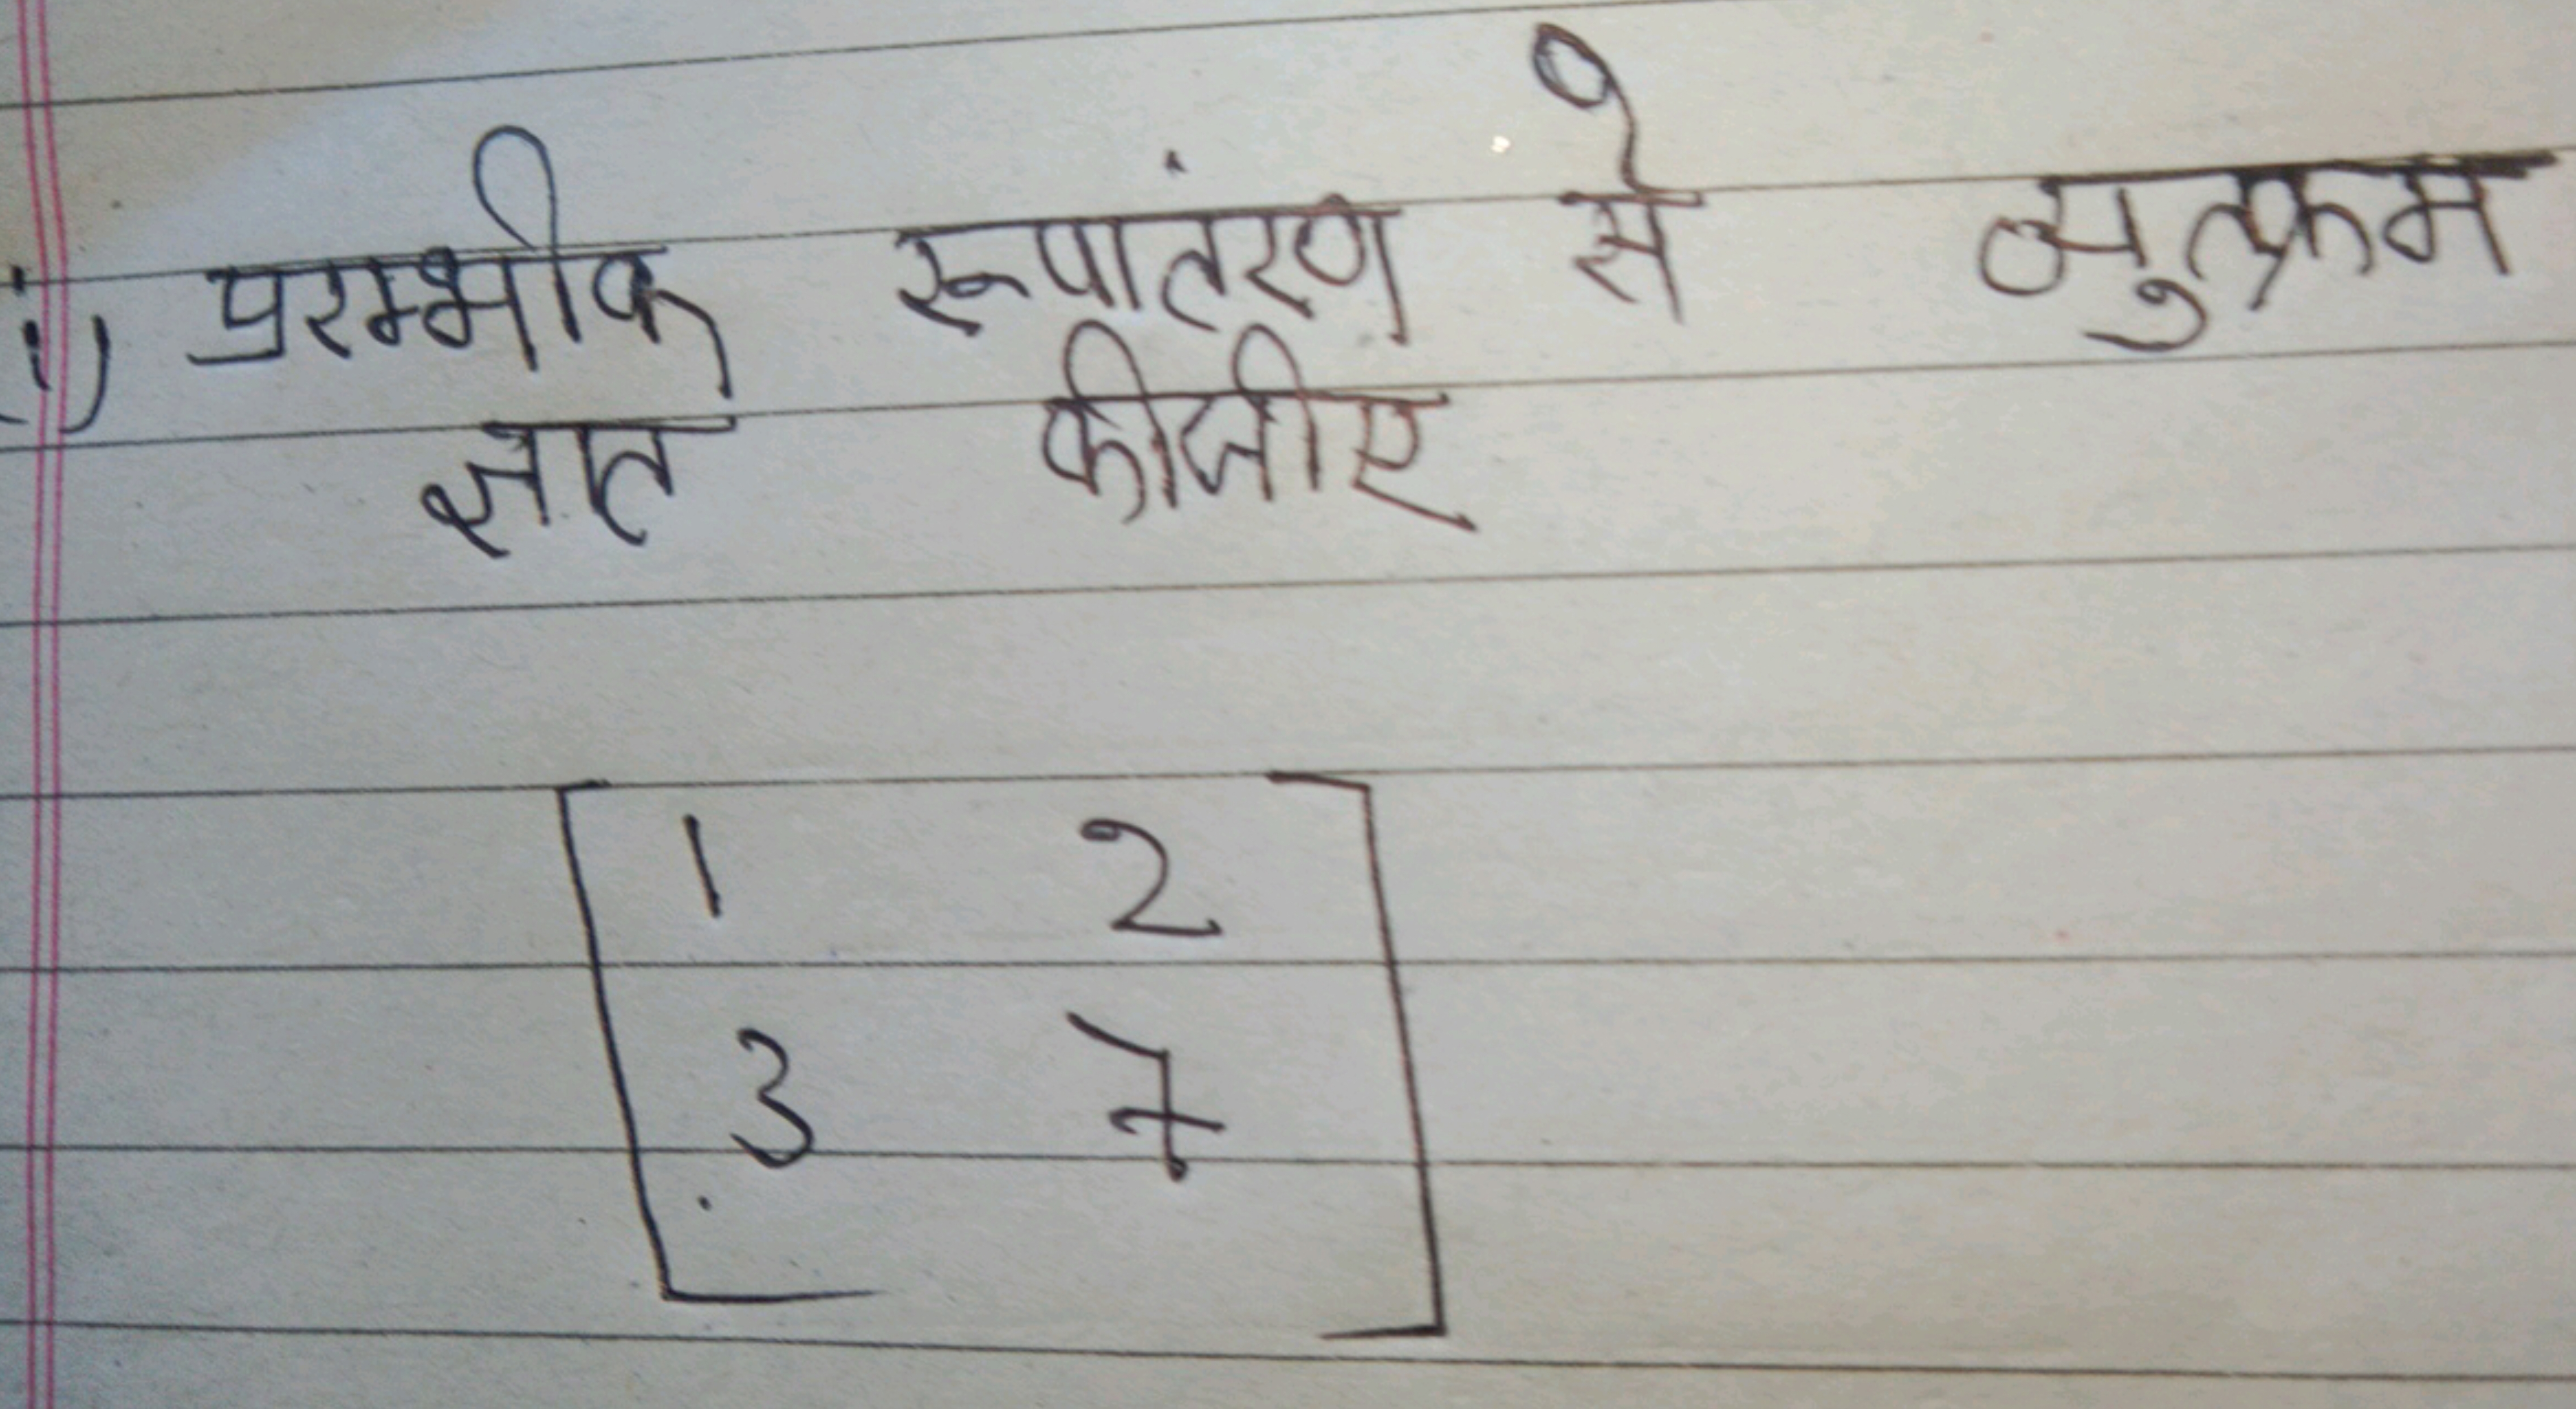 i) प्ररम्भीक रूपांतरण से व्युत्क्रम
ज्ञात कीजीए
1 2
3 7